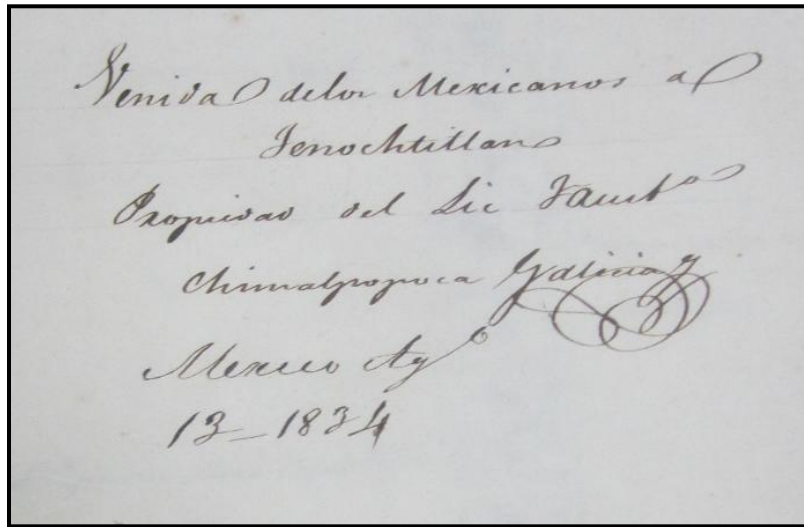 Venida delos Mexicanos a
Tenochtitlan
Propiedad del Lic Faustº
Chimalpopoca Galicia
Mexico Agº
13_1834